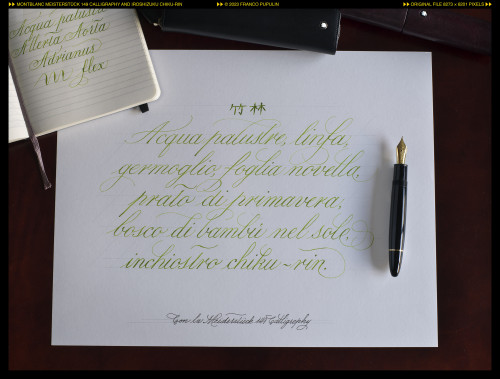 MONTBLANC MEISTERSTÜCK 149 CALLIGRAPHY AND IROSHIZUKU CHIKU-RIN
© 2023 FRANCO PUPULIN
ORIGINAL FILE 8273 × 6201 PIXELS
Acqua palustre
Allerta, Aorta
Adrianus
m flex
竹林
Acqua palustre, linfa,
germoglio, foglia novella,
prato di primavera,
bosco di bambù nel sole:
inchiostro chiku-rin.
Con la Meisterstück 149 Calligraphy